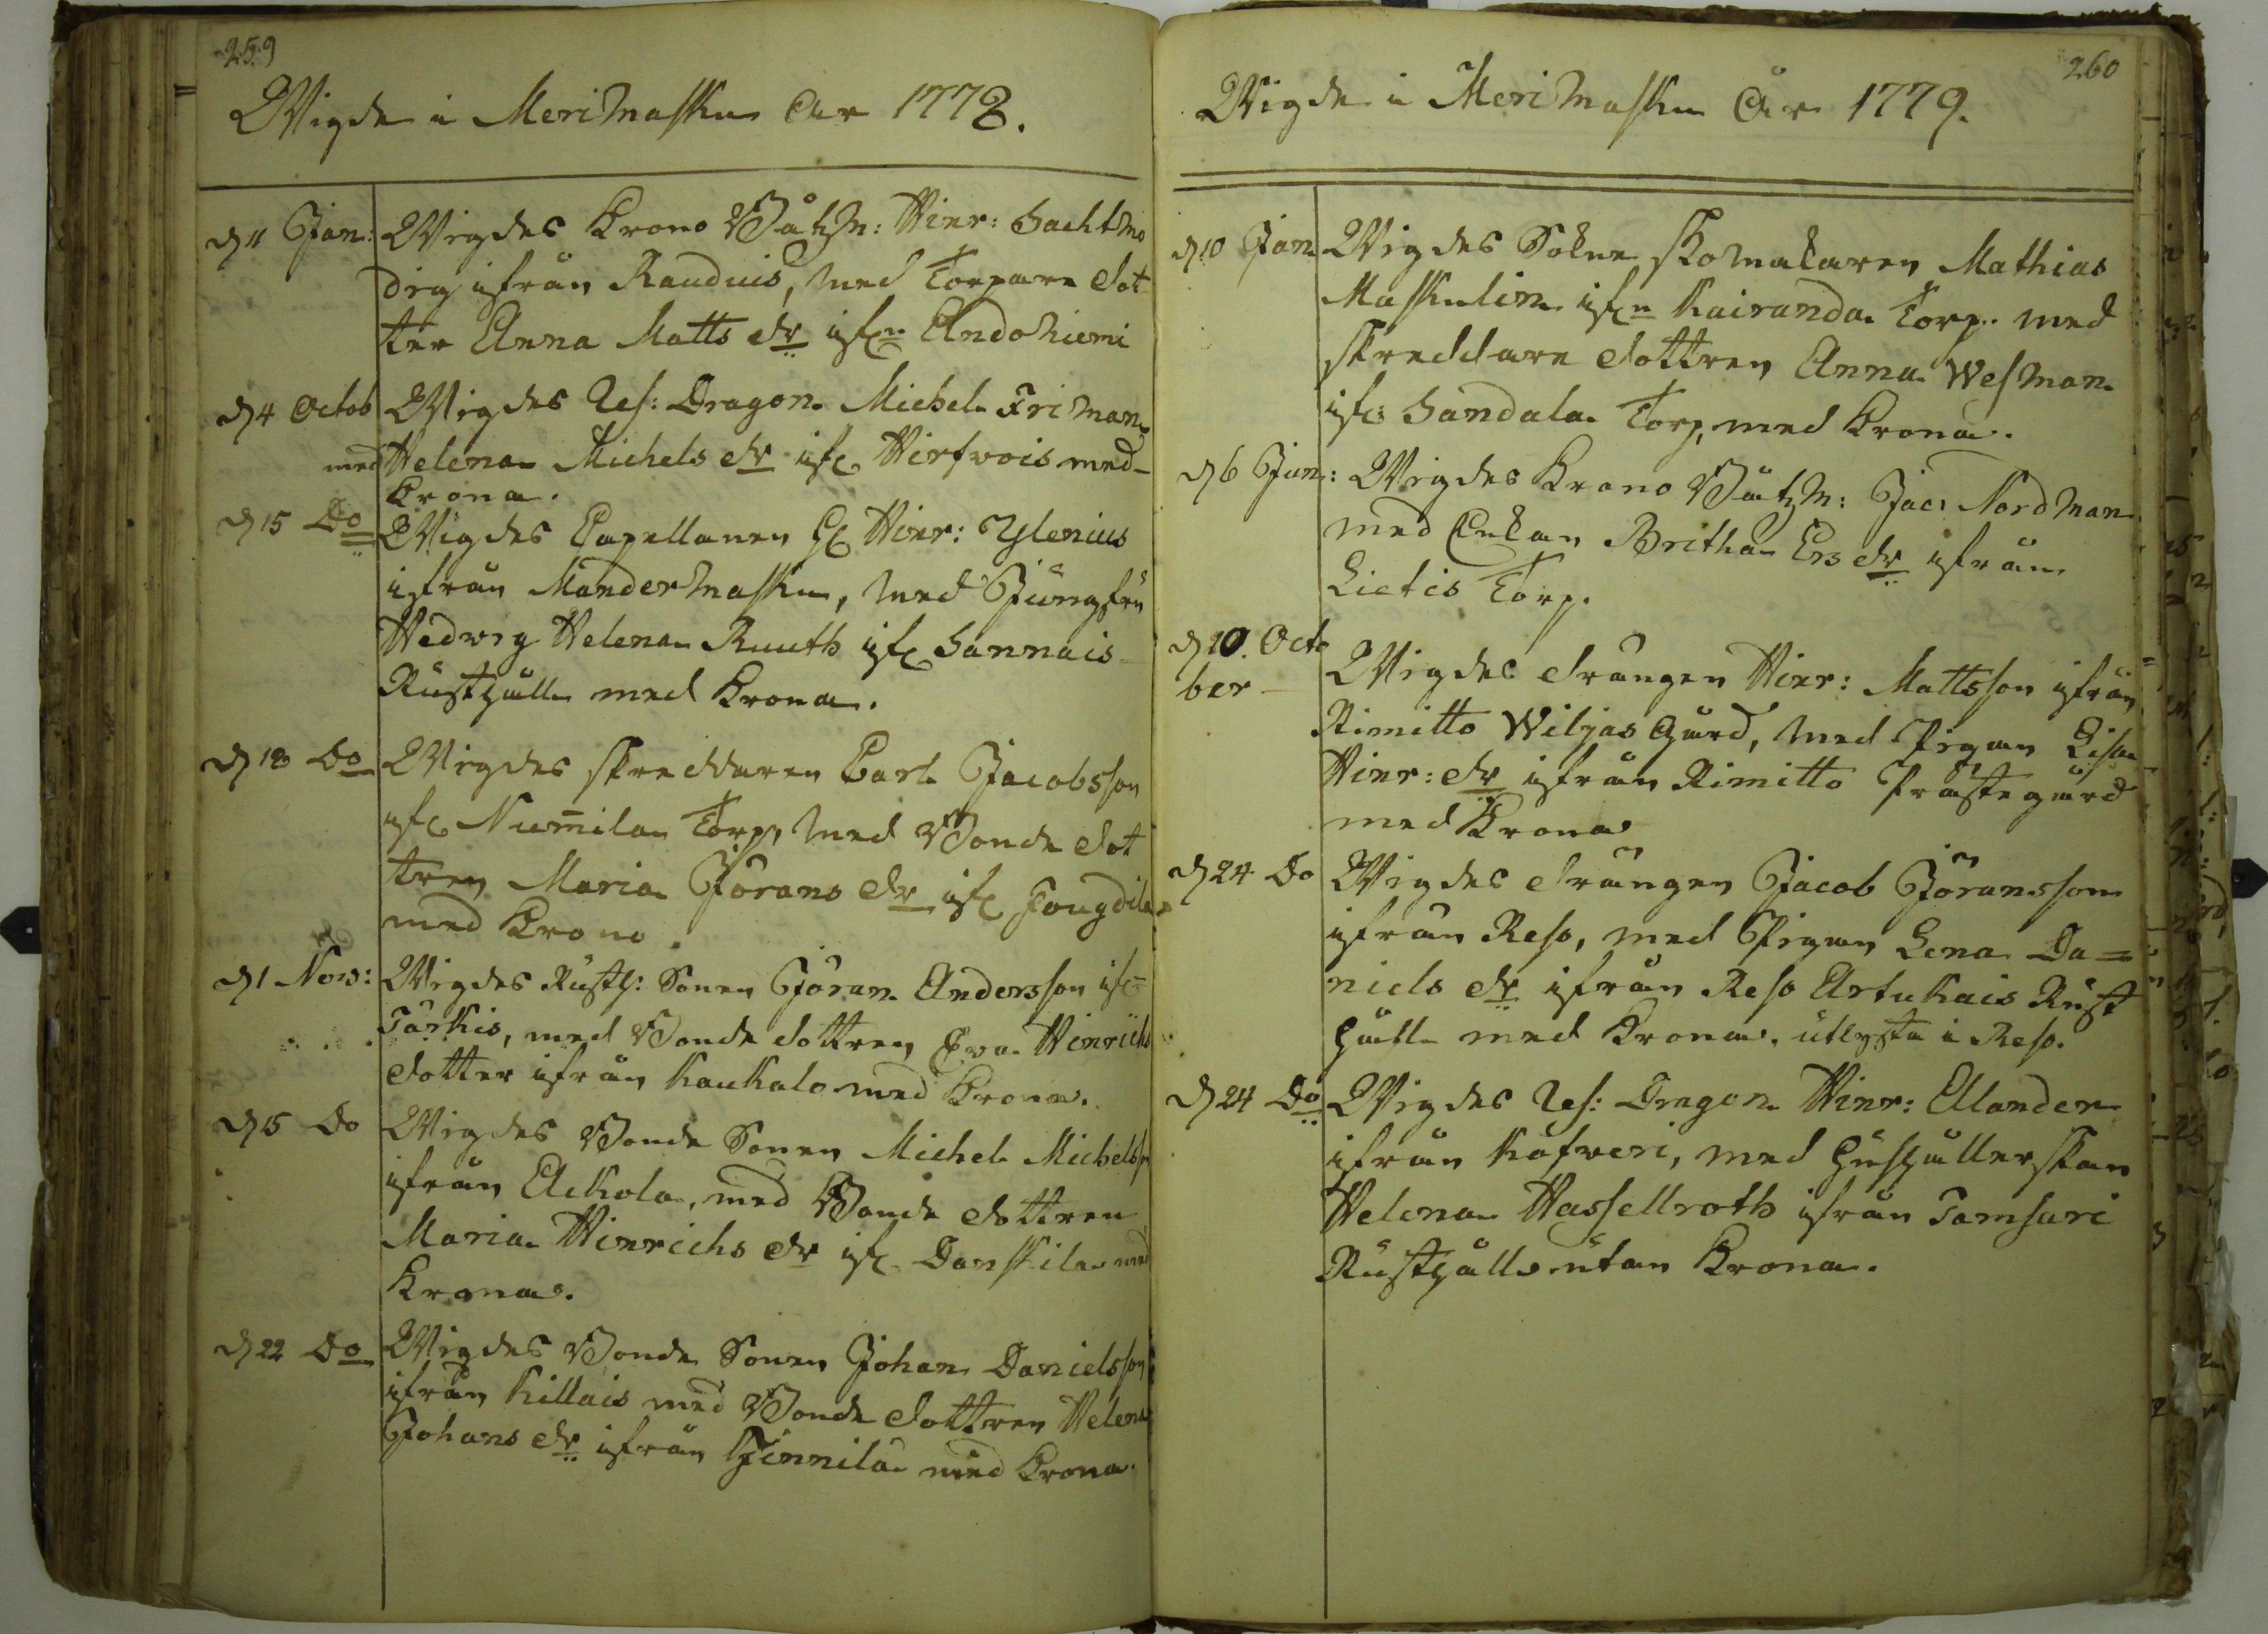 259
Wigde i MeriMasku År 1778.
d 11 Jan: Wigdes Krono Båtzm: Hinr: Sachtmo
dig ifrån Rauduis, med Torpare dot
ter Anna Matts dr ifrn Andoniemi
d 4 Octob Wigdes Res: Dragon Michel Friman
med Helena Michels dr ifr Hirfvois med
Krona.
d 15 Do Wigdes Capellanen H Hinr: Ylenius
ifrån MånderMasku, med Jungfru
Hedvig Helena Ruuth ifr Sannais
Rusthåll med Krona.
d 18 Do Wigdes skreddaren Carl Jacobsson
ifr Niemila Torp, med Bonde dot
tren Maria Görans dr ifr Fougdila
med Krono.
d 1 Nov: Wigdes Rusth: Sonen Göran Andersson ifr
Järkis, med Bonde dottren Eva Hinrichs
dotter ifrån Kaukalo med Krona.
d 15 Do Wigdes Bonde Sonen Michel Michelsson
ifrån Ackola, med Bonde dottren
Maria Hinrichs dr ifr Danskila med
Krona.
d 22 Do Wigdes Bonde Sonen Johan Danielsson
ifrån Killais med Bonde dottren Helena
Johans dr ifrån Finnila med Krona.
260
Wigde i MeriMasku År 1779.
d 10 Jan Wigdes Sokne skomakaren Mathias
Maskulin ifrn Kairanda Torp. med
skreddare dottren Anna Wesman
ifr Sandala Torp, med Krona.
d 6 Jun: Wigdes Krono Båtzm: Jac: Nordman
med Enkan Britha Ers dr ifrån
Lietis Torp.
d 10. Octo
ber Wigdes drängen Hinr: Mattsson ifrån
Rimitto Wiljas Gård, med Pigan Lisa
Hinr: dr ifrån Rimitto Prästegård
med Krona
d 24 Do Wigdes drängen Jacob Göransson
ifrån Reso, med Pigan Lena Da=
niels dr ifrån Reso Artukais Rust
håll med Krona. utlysta i Reso.
d 24 Do Wigdes Res: Dragon Hinr: Elander
ifrån Kåfveri, med Hushållerskan
Helena Hassellroth ifrån Tamsari
Rusthåll utan Krona.